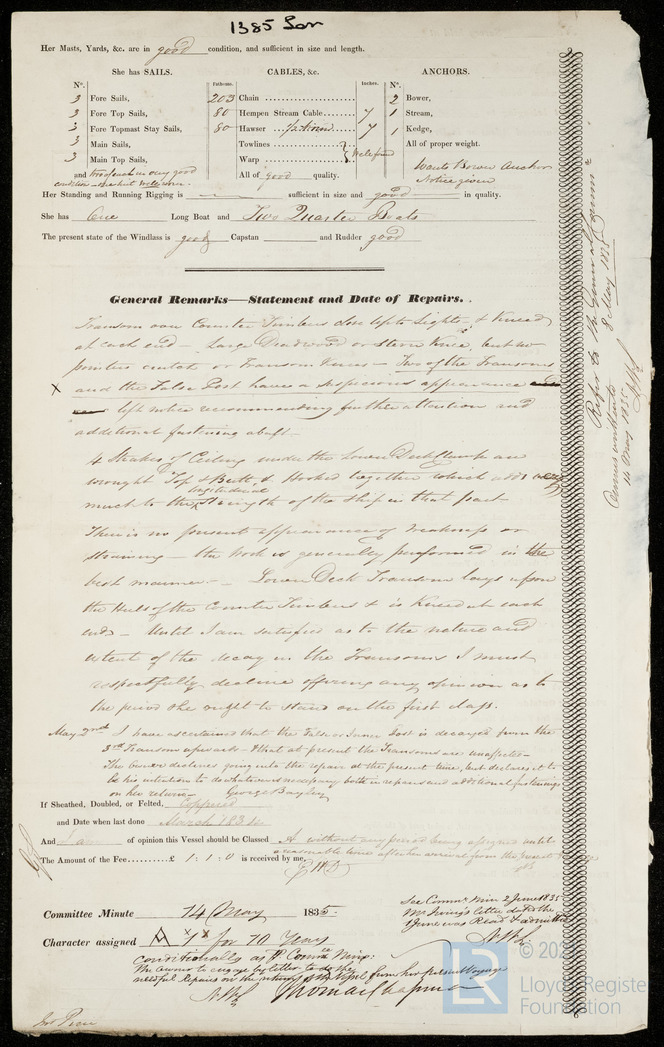 1385 Lon
Her Masts, Yards, &c. are in good condition, and sufficient in size and length.
She has SAILS. CABLES, &c. ANCHORS.
N°. Fathoms. Inches. N°.
3 Fore Sails, 203 Chain 2 Bower,
3 Fore Top Sails, 80 Hempen Stream Cable 7 1 Stream,
3 Fore Topmast Stay Sails, 80 Hawser 7 1 Kedge,
3 Main Sails, Towlines All of proper weight.
3 Main Top Sails, Warp Wants Bower Anchor
and All of good quality. Notice given
Her Standing and Running Rigging is sufficient in size and good in quality.
She has One Long Boat and Two Quarter Boats
The present state of the Windlass is good Capstan and Rudder good
General Remarks—Statement and Date of Repairs.
Transom and Counter Timbers close up to Lights, & Kneed
at each end - Large Deadwood or Stern Knee, but no
pointers or Transom Knees - Two of the Transoms
x and the False Post have a suspicious appearance
left notice recommending further attention and
additional fastening abaft -
4 Strakes of Ceiling under the Lower Deck Clamp are
wrought Top & Butt & Hooked together which adds very
much to the longitudinal strength of the Ship in that part
There is no present appearance of weakness or
straining - the work is generally performed in the
best manner - Lower Deck Transom lays upon
the Heels of the Counter Timbers & is Kneed at each
end - Until I am satisfied as to the nature and
extent of the decay in the Transoms I must
respectfully decline offering any opinion as to
the period she ought to stand on the first class.
May 2nd I have ascertained that the False or Inner Post is decayed from the
3rd Transom upwards - & that at present the Transoms are unaffected -
The Owner declines going into the repair at the present time, but declares it to
be his intention to do whatever necessary both in repairs and additional fastenings
on her return - George Bayley
If Sheathed, Doubled, or Felted, Coppered
and Date when last done March 1834
And I am of opinion this Vessel should be Classed A without any period being assigned until
a reasonable time after her arrival from the present
The Amount of the Fee £ 1 : 1 : 0 is received by me,
Committee Minute 14 May 1835
See Comm. Min 2 June 1835
Mr Irving's letter dated the
1 June was Read & admitted
Character assigned A 1 for 10 Years
conditionally as pr Comm. Ming:
The owner to engage by letter to do the
needful Repairs on the return of the Vessel from her present Voyage
Thomas Chapman
Refer to the General
8 May 1835
14 May 1835
© 202
Lloyd's Register
Foundation
LR